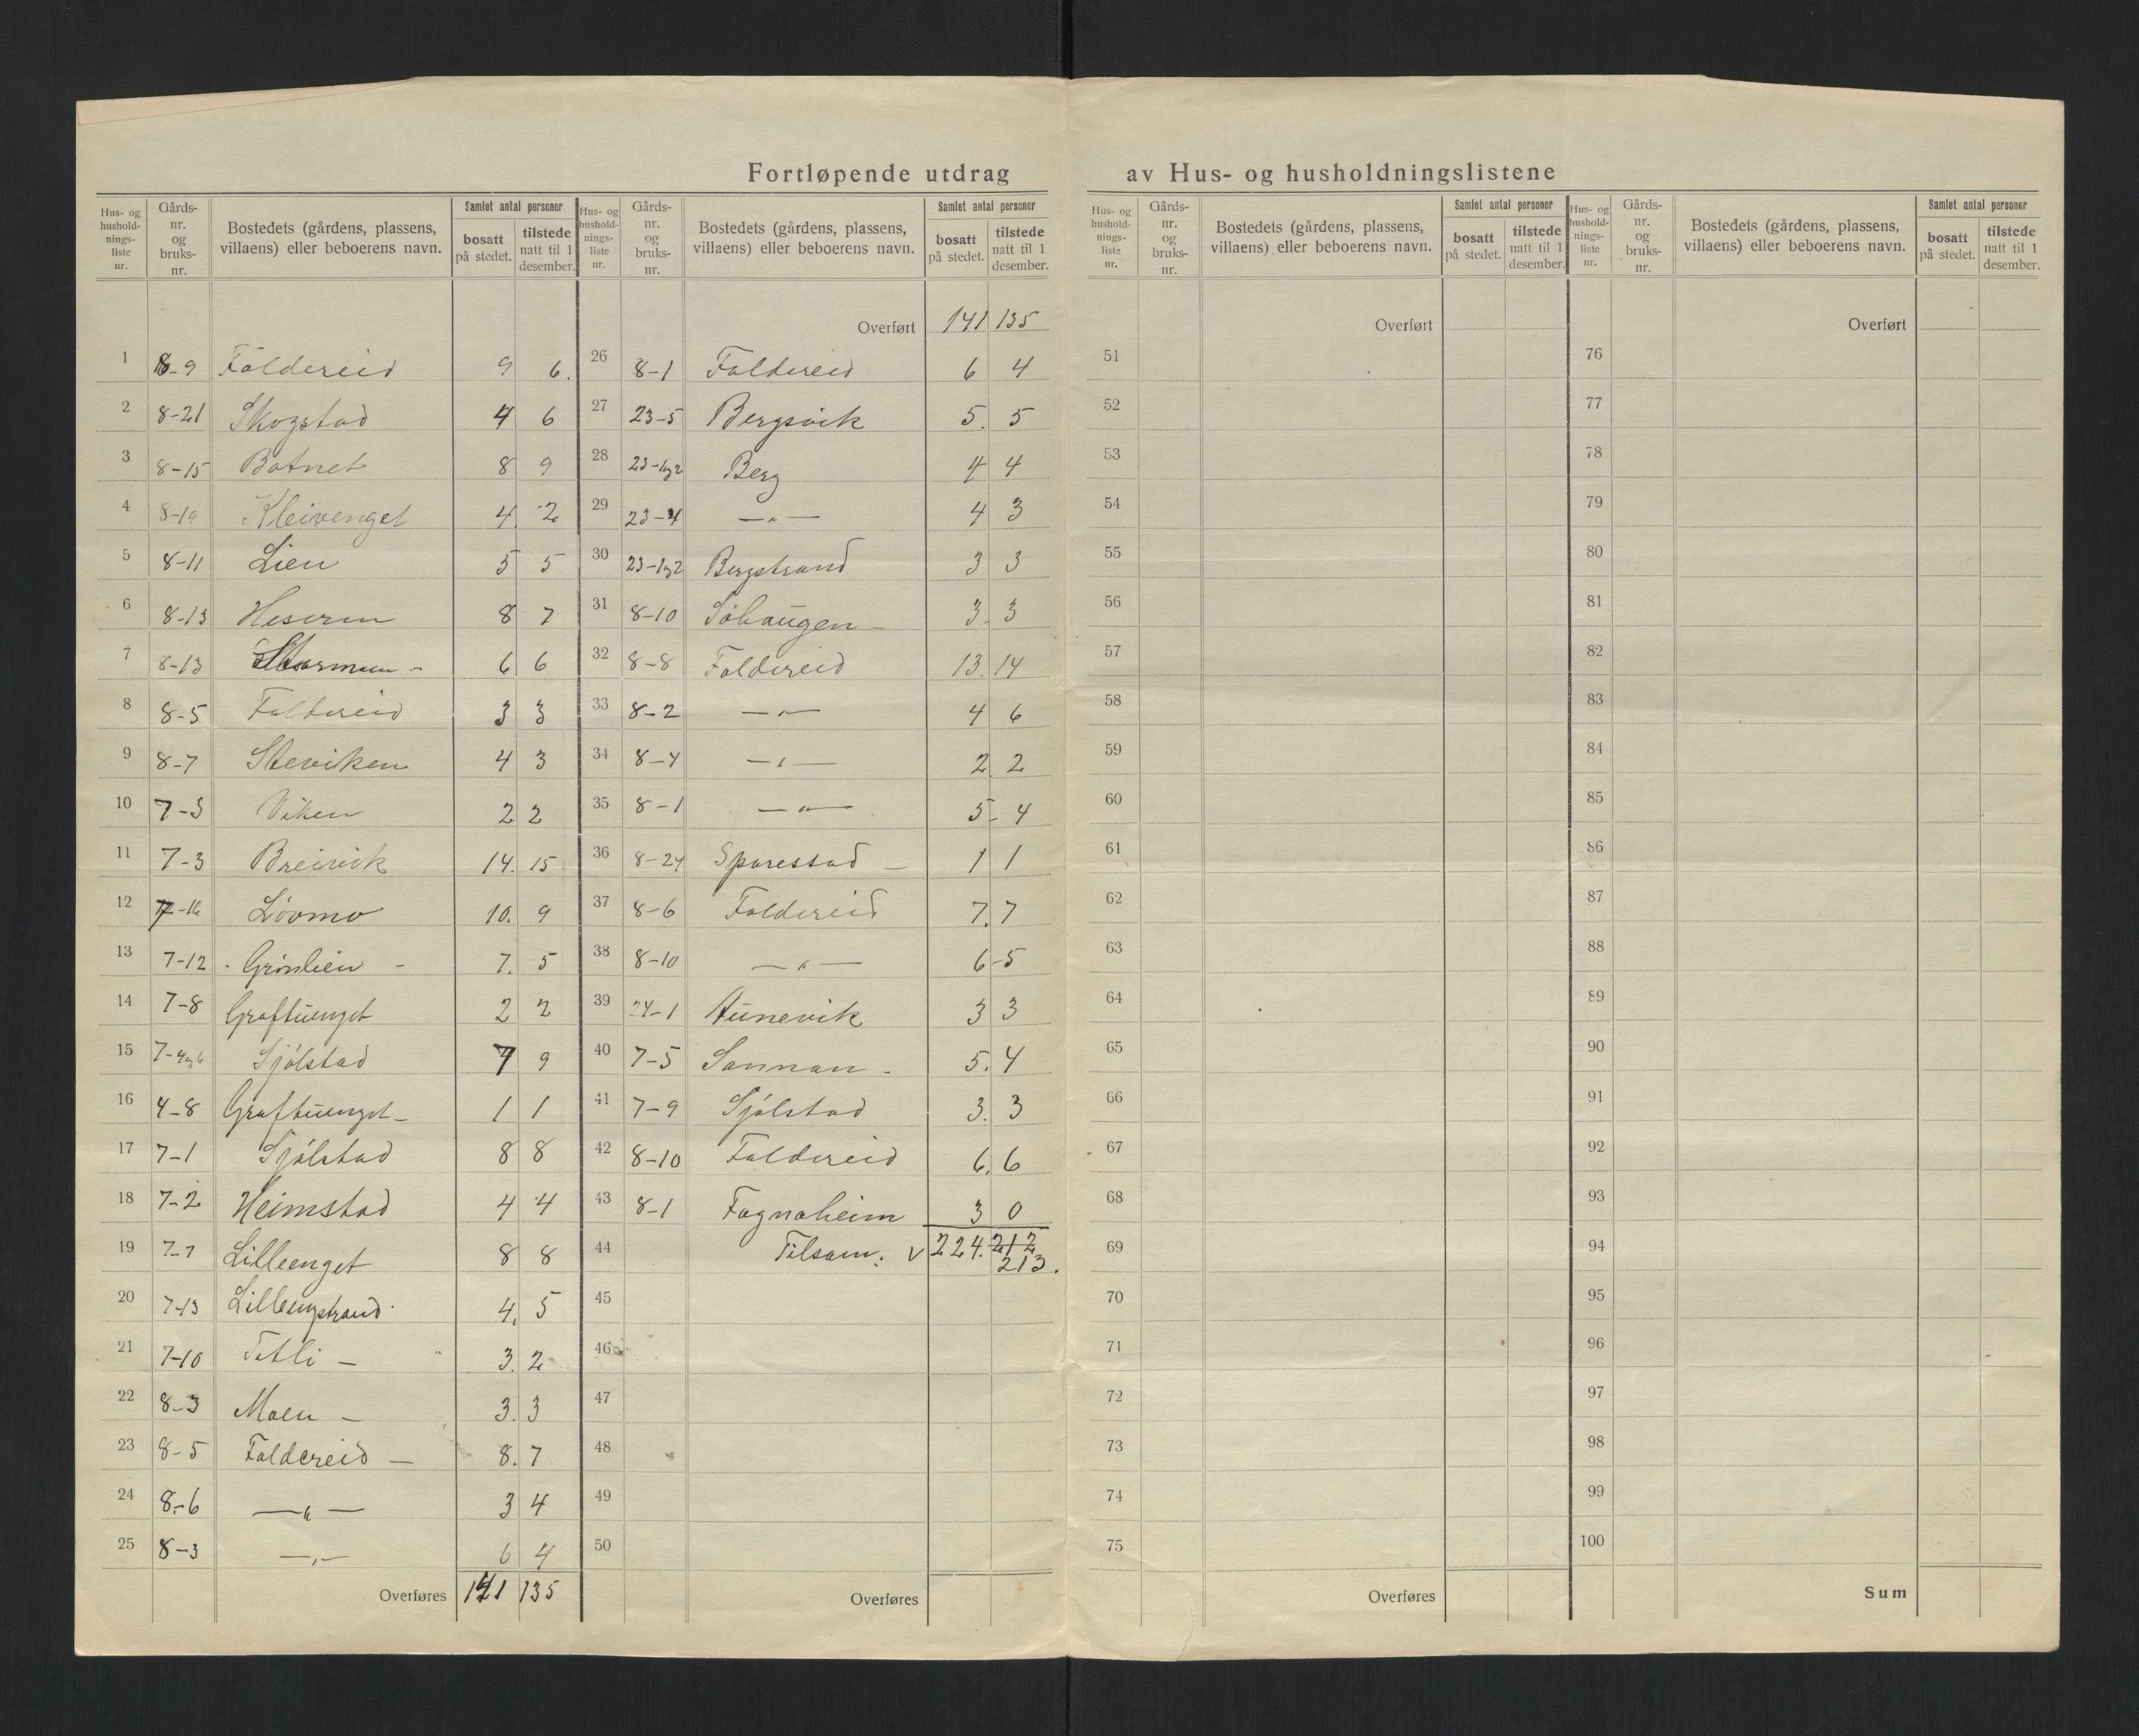 Fortløpende utdrag av Hus- og husholdningslistene
Hus- og hushold- nings- liste nr. | Gårds- nr. og bruks- nr. | Bostedets (gårdens, plassens, villaens) eller beboerens navn. | Samlet antal personer | bosatt på stedet. | tilstede natt til 1 desember.
1 8-9 Foldereid 9 6.
2 8-21 Skogstad 4 6
3 8-15 Botnet 8 9
4 8-19 Kleivenget 4. 2
5 8-11 Lien 5 5
6 8-13 8 7
7 8-13 6 6
8 8-5 Foldereid 3 3
9 8-7 Steviken 4 3
10 7-3 Viken 2 2
11 7-3 Breivik 14. 15
12 7-16 Lövmo 10. 9
13 7-12 Grönlien - 7. 5
14 7-8 Graftuenget 2 2
15 7-4og6 Sjölstad 7 9
16 4-8 Graftuenget - 1 1
17 7-1 Sjölstad 8 8
18 7-2 Heimstad 4 4
19 7-7 Lilleenget 8 8
20 7-13 Lillengstrand 4. 5
21 7-10 Titli - " 3. 2
22 8-3 Moen - 3. 3
23 8-5 Foldereid - 8. 7
24 8-6 — " — 3 4
25 8-3 — " — 6 4
Overføres 141 135
Hus- og hushold- nings- liste nr. | Gårds- nr. og bruks- nr. | Bostedets (gårdens, plassens, villaens) eller beboerens navn. | Samlet antal personer | bosatt på stedet. | tilstede natt til 1 desember.
Overført 141 135
26 8-1 Foldereid 6 4
27 23-5 Bergsvik 5. 5
28 23-1og2 Berg 4 4
29 23-4 — " — 4 3
30 23-1og2 Bergstrand 3 3
31 8-10 Söhaugen - 3. 3
32 8-8 Foldereid 13. 14
33 8-2 — " — 4 6
34 8-4 — " — 2 2
35 8-1 — " — 5- 4
36 8-24 Sparestad - 1 1
37 8-6 Foldereid 7. 7
38 8-10 — " — 6-5
39 24-1 Aunevik 3 3
40 7-5 Sannan - 5. 4
41 7-9 Sjölstad 3. 3
42 8-10 Foldereid 6. 6
43 8-1 Fagnaheim 3 0
44 Tilsam: v 224. 212
213.
45
46
47
48
49
50
Overføres
Hus- og hushold- nings- liste nr. | Gårds- nr. og bruks- nr. | Bostedets (gårdens, plassens, villaens) eller beboerens navn. | Samlet antal personer | bosatt på stedet. | tilstede natt til 1 desember.
Overført
51
52
53
54
55
56
57
58
59
60
61
62
63
64
65
66
67
68
69
70
71
72
73
74
75
Overføres
Hus- og hushold- nings- liste nr. | Gårds- nr. og bruks- nr. | Bostedets (gårdens, plassens, villaens) eller beboerens navn. | Samlet antal personer | bosatt på stedet. | tilstede natt til 1 desember.
Overført
76
77
78
79
80
81
82
83
84
85
86
87
88
89
90
91
92
93
94
95
96
97
98
99
100
Sum